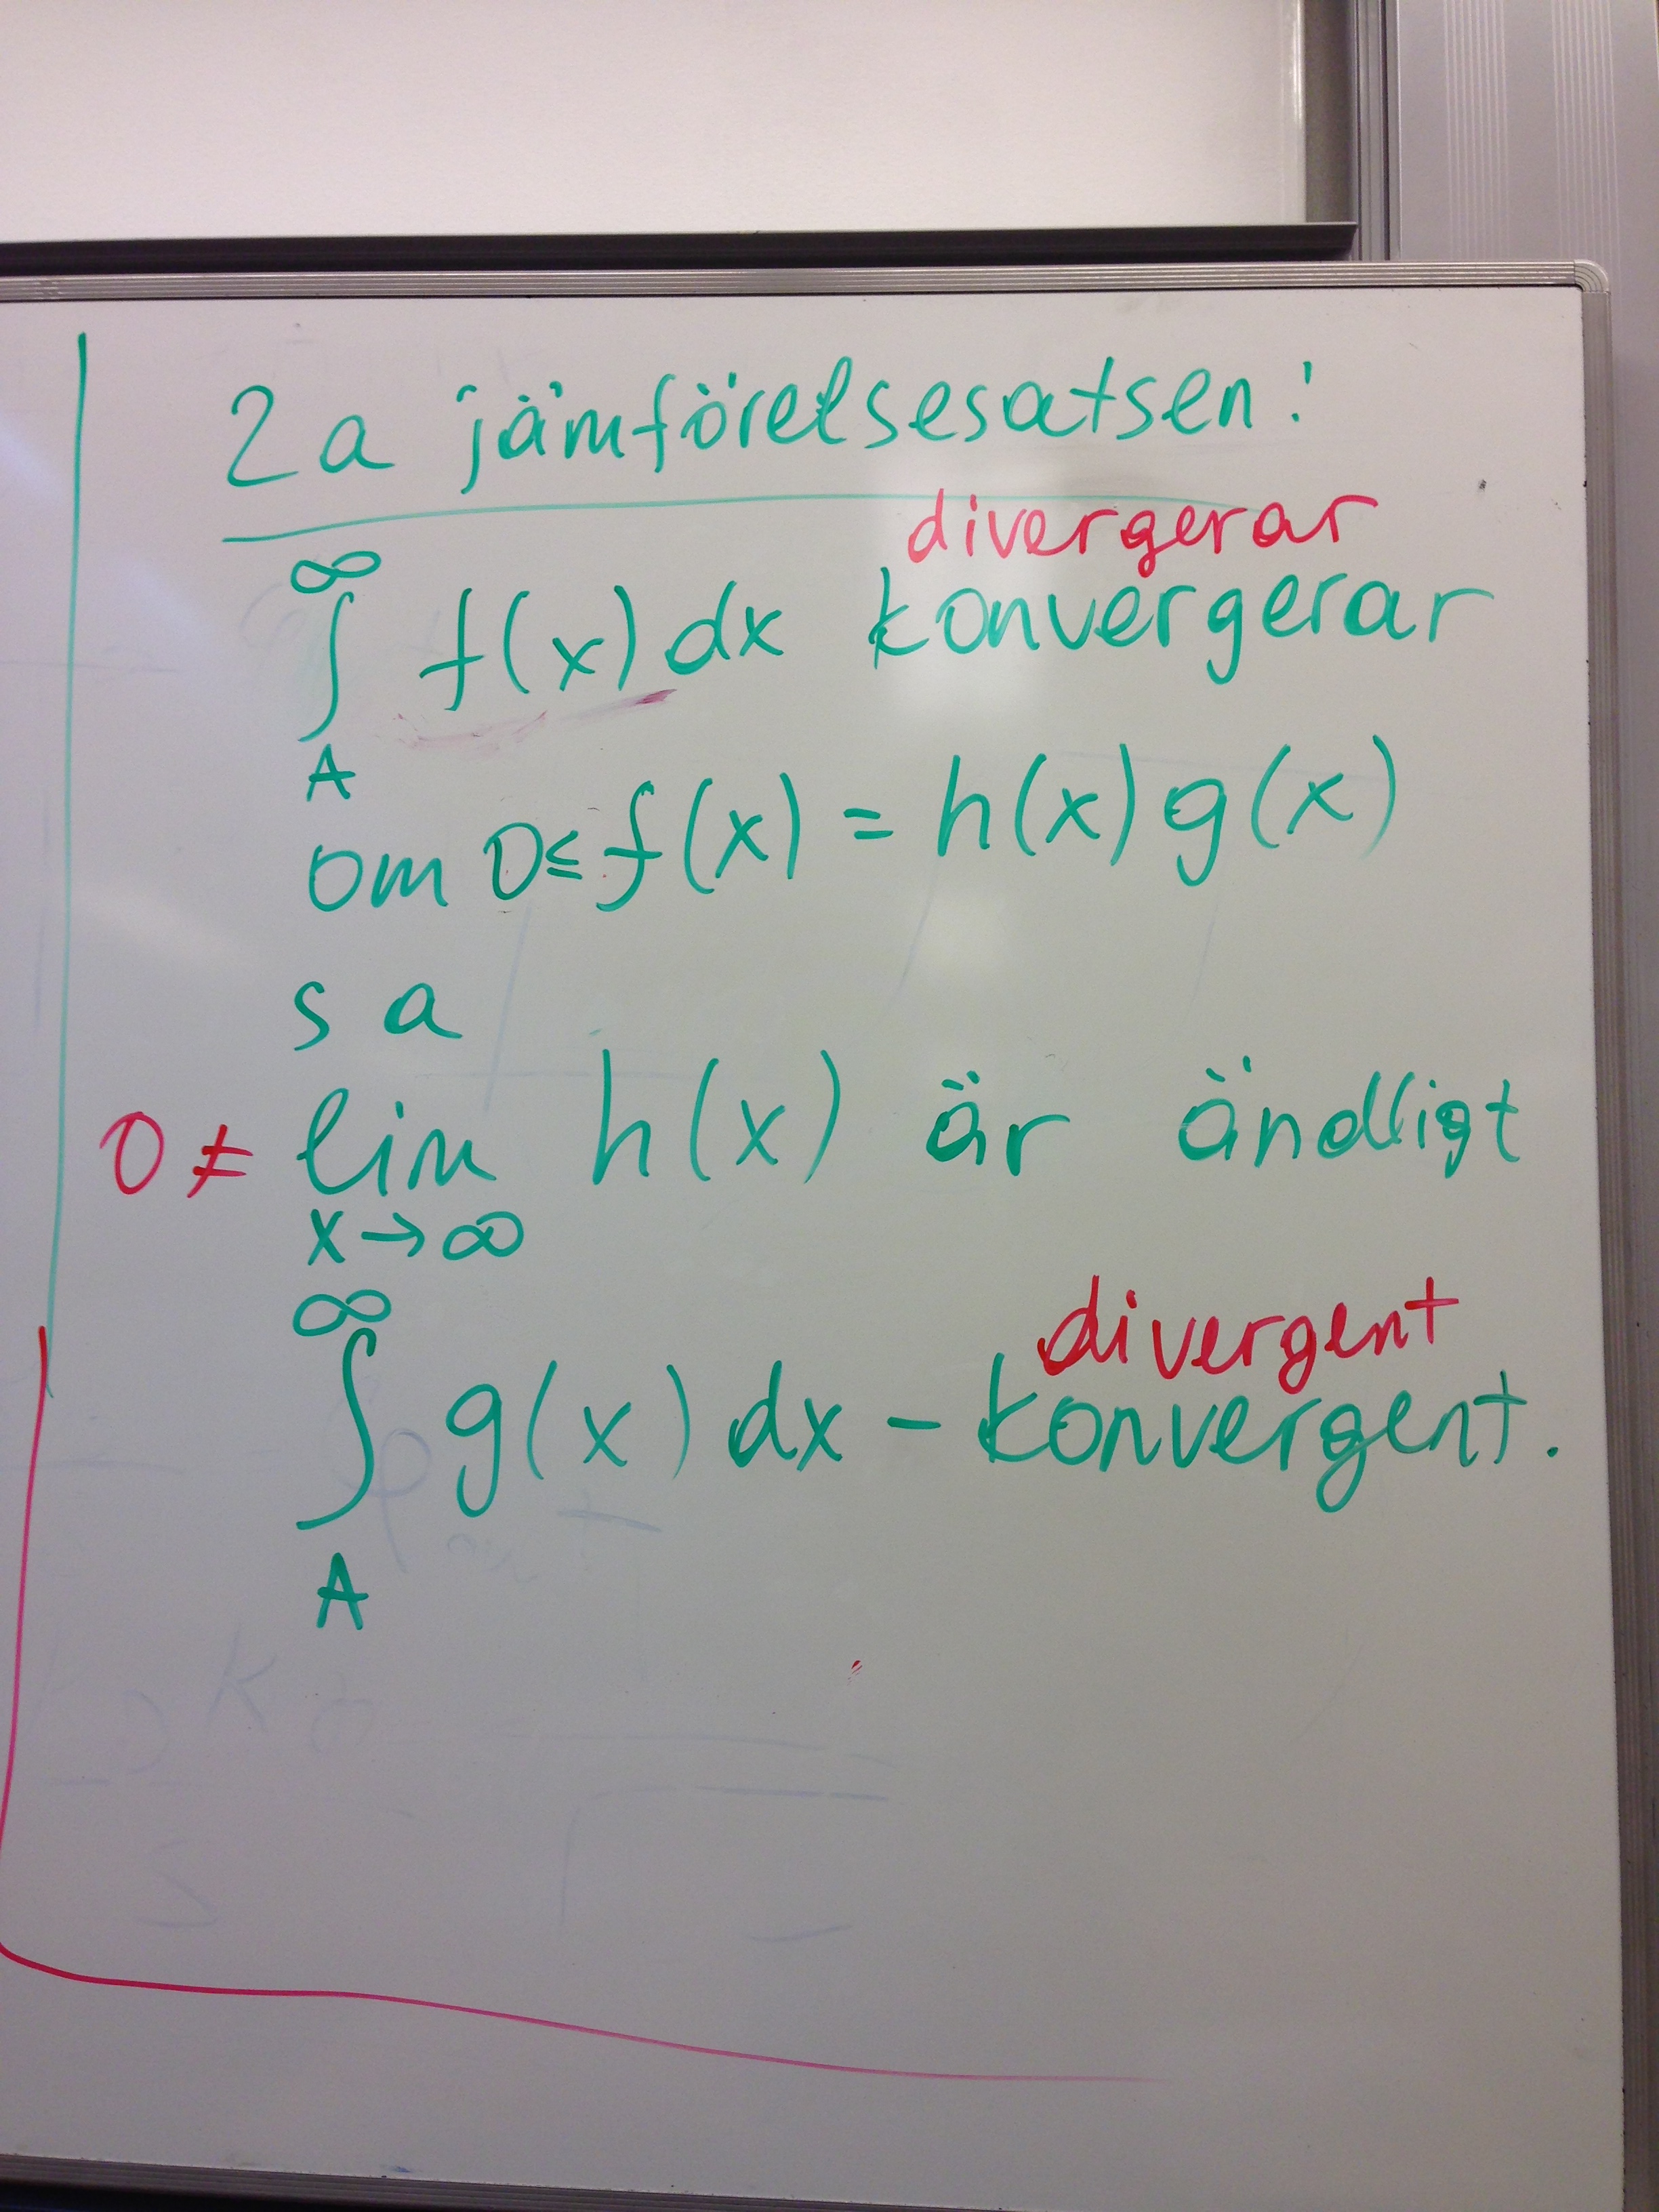 2a jämförelsesatsen:
divergerar
∞
∫ f(x) dx konvergerar
A
om 0≤ f(x) = h(x) g(x)
s a
0 ≠ lim h(x) är ändligt
x→∞
divergent
∞
∫ g(x) dx - konvergent.
A